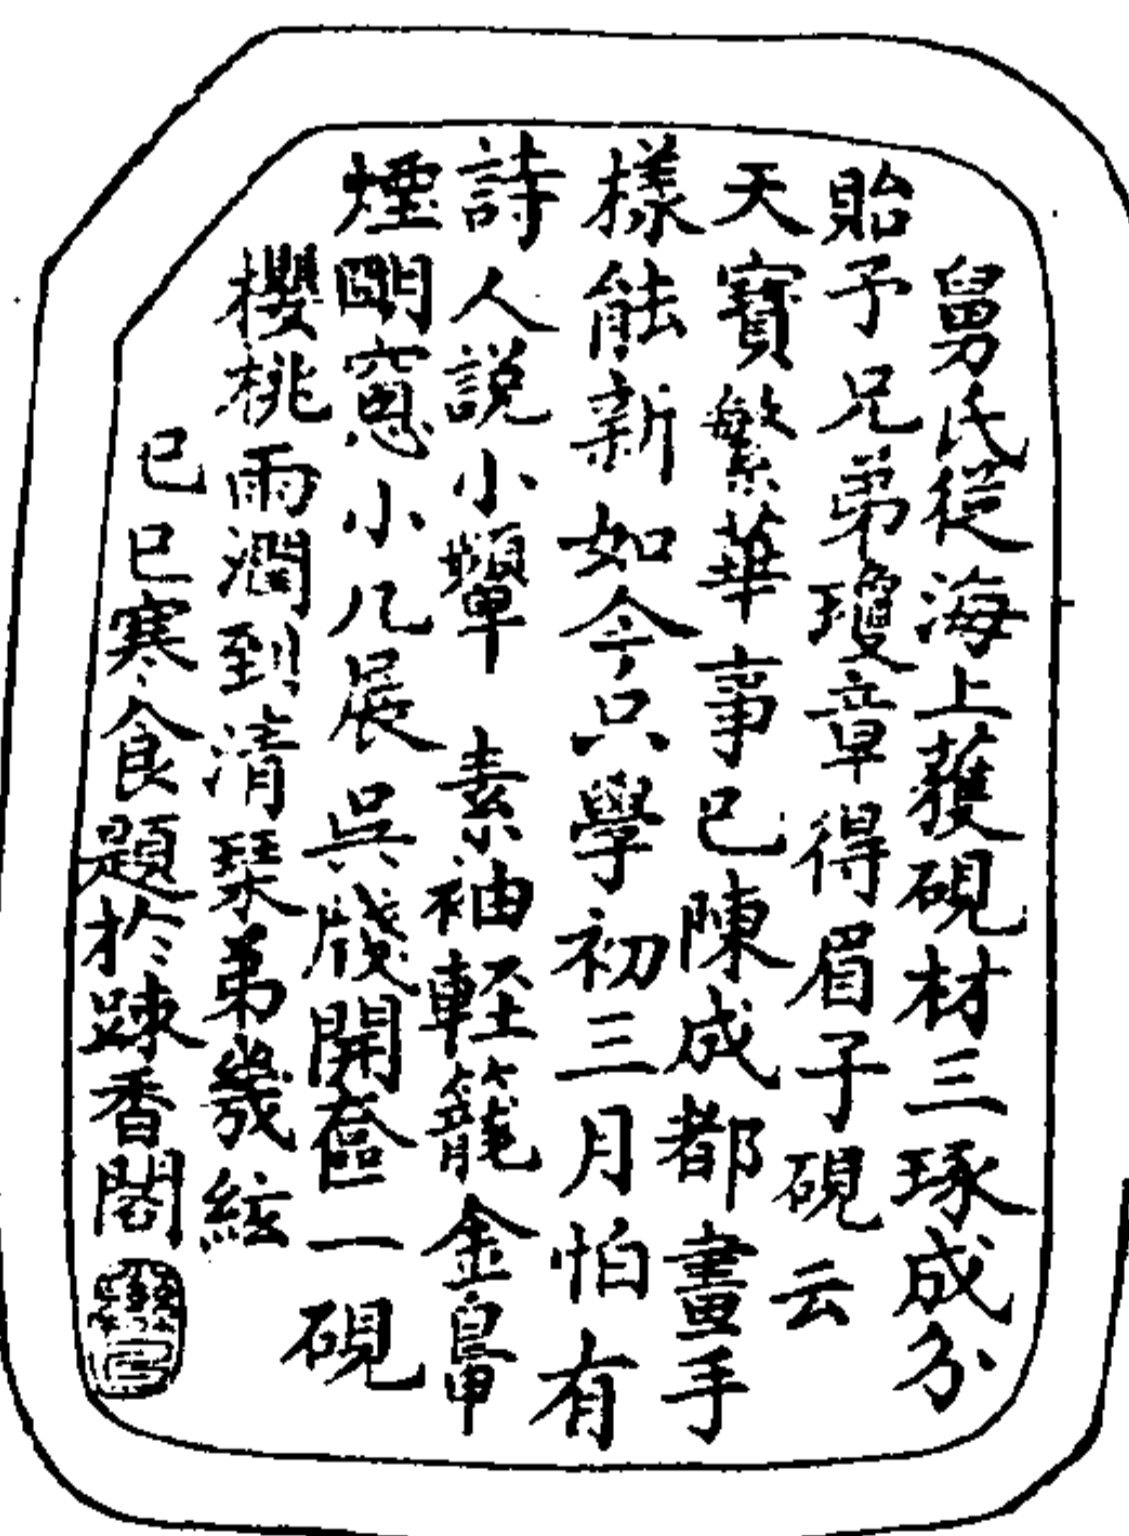 舅氏從海上獲硯材三琢成分
貽予兄弟瓊章得眉子硯云
天寶繁華事已陳成都畫手
樣能新如今只學初三月怕有
詩人說小顰 素袖軽籠金鳧
煙明窓小几展吳牋開奩一硯
櫻桃雨潤到清琹弟幾絃
己巳寒食題於疎香閣